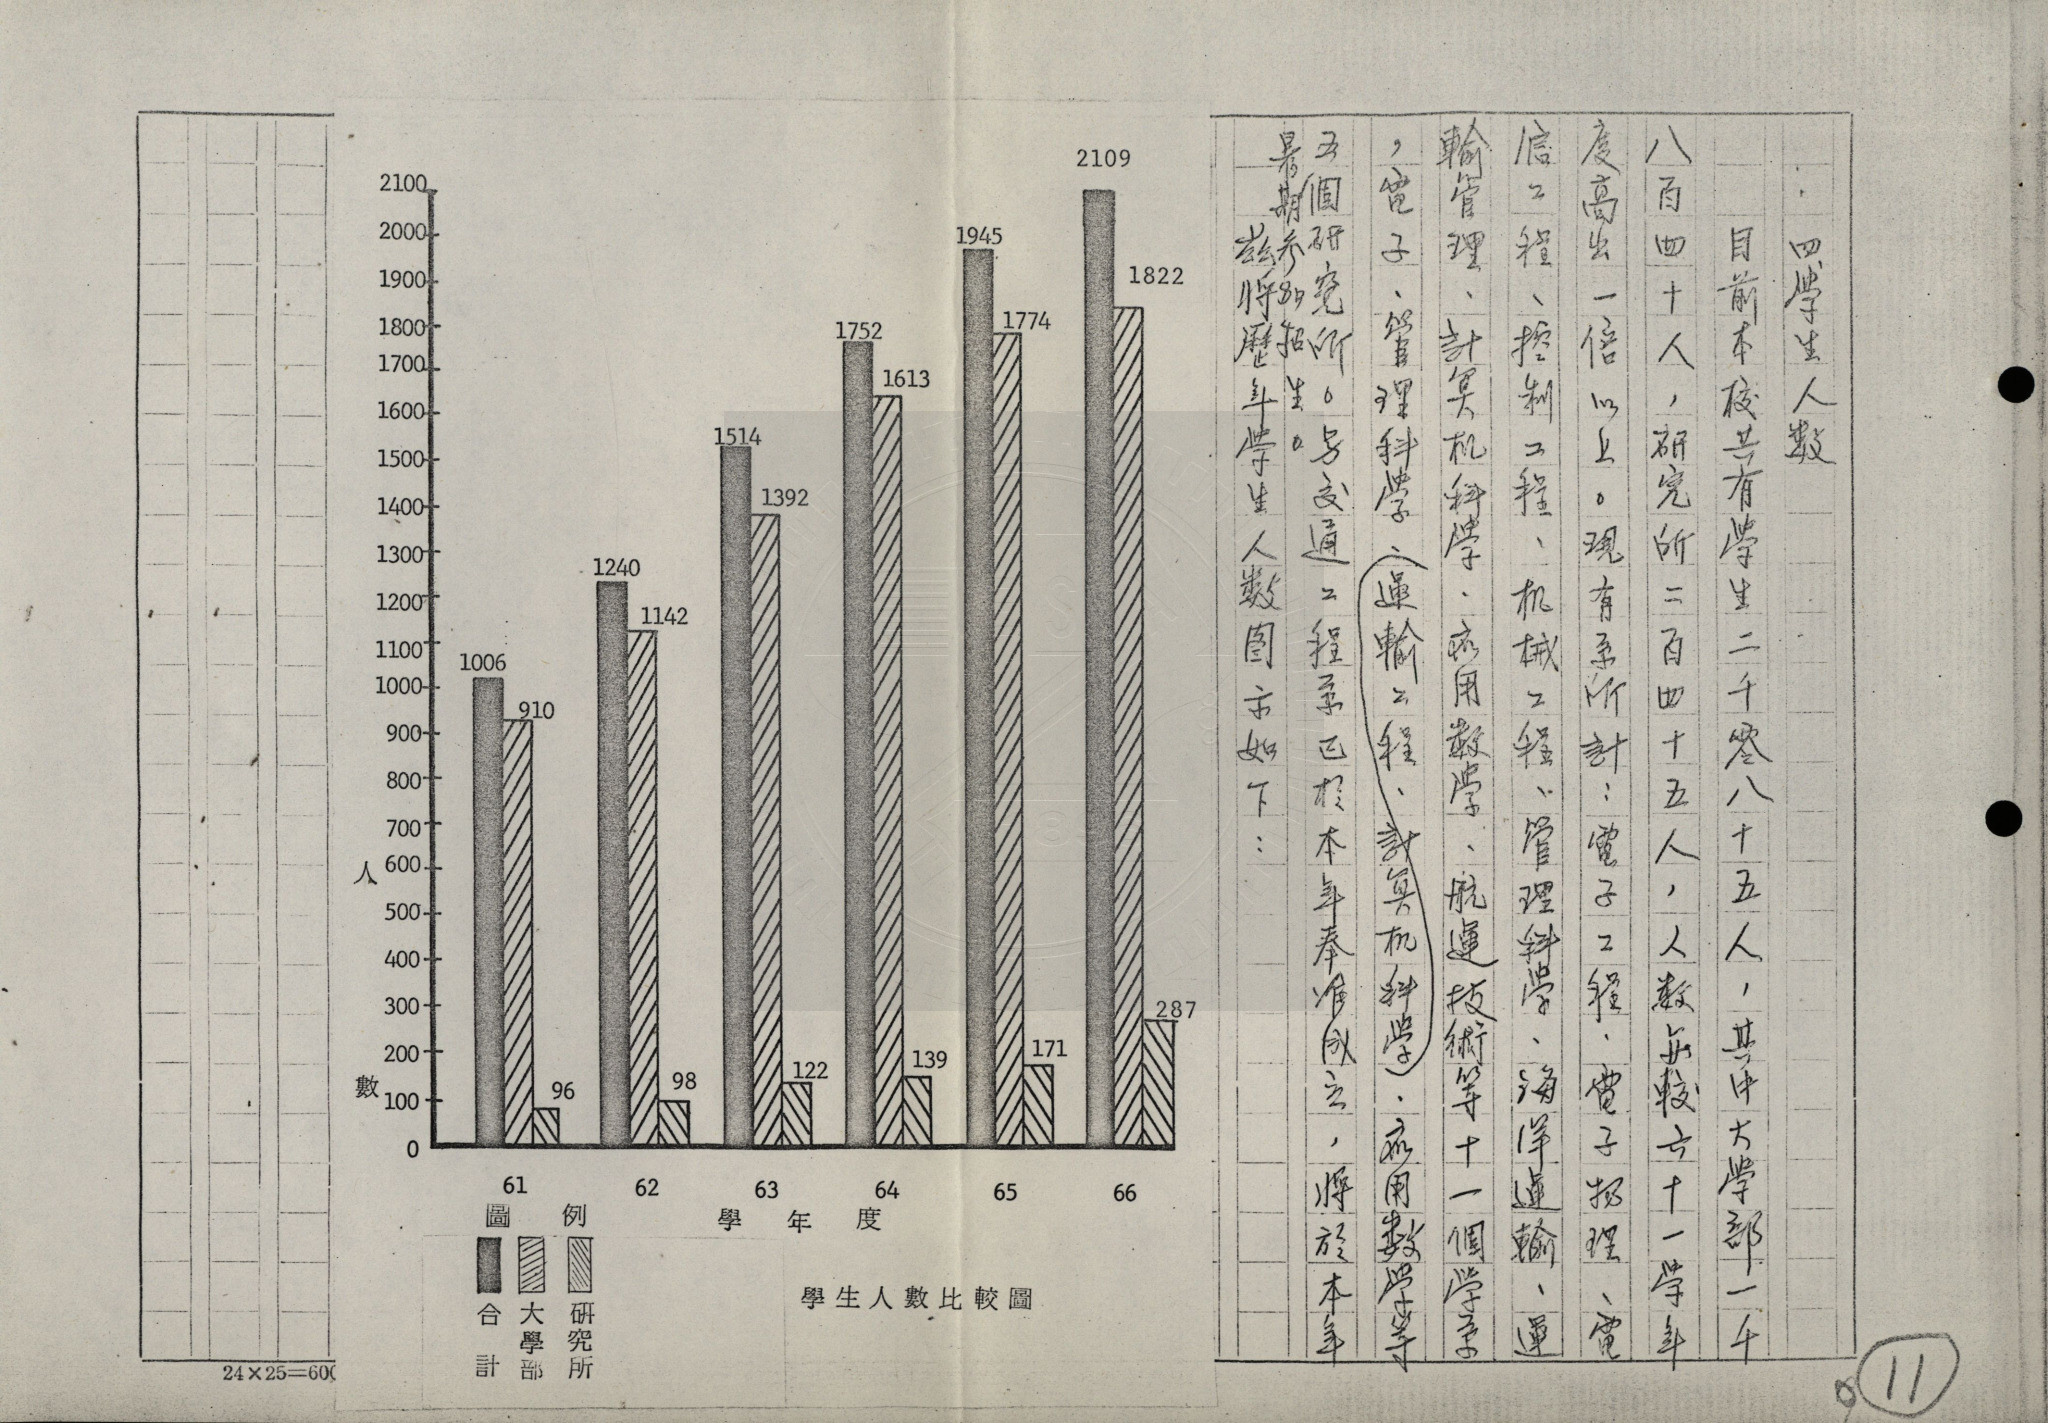 四學生人数
目前本校共有學生二千零八十五人，其中大學部一千
八百四十人，研究所二百四十五人，人数並較六十一學年
度高出一倍以上。現有系所計：電子工程、電子物理、電
信工程、控制工程、机械工程、管理科學、海洋運輸、運
輸管理、計算机科學、应用数學、航運技術等十一個學系
，電子、管理科學、（運輸工程、計算机科學）、应用数學等
五個研究所。另交通工程系已於本年奉准成立，將於本年
暑期參加招生。
茲將歷年學生人数图示如下：
2100
2000
1900
1800
1700
1600
1500
1400
1300
1200
1100
1000
900
800
700
600
500
400
300
200
100
0
人數
1006
910
96
1240
1142
98
1514
1392
122
1752
1613
139
1945
1774
171
2109
1822
287
61 62 63 64 65 66
學年度
圖例
合計
大學部
研究所
學生人數比較圖
24×25=600
11